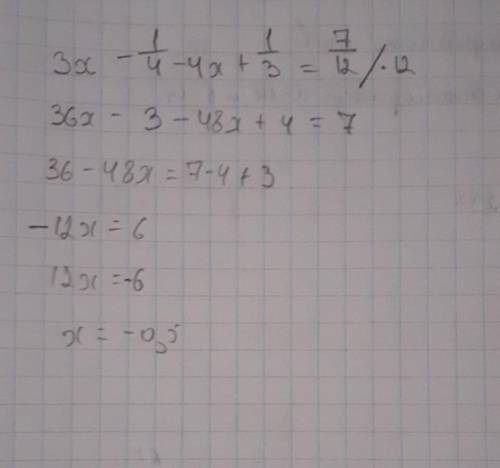 3x - 1/4 - 4x + 1/3 = 7/12 / · 12
36x - 3 - 48x + 4 = 7
36 - 48x = 7 - 4 + 3
-12x = 6
12x = -6
x = -0,5